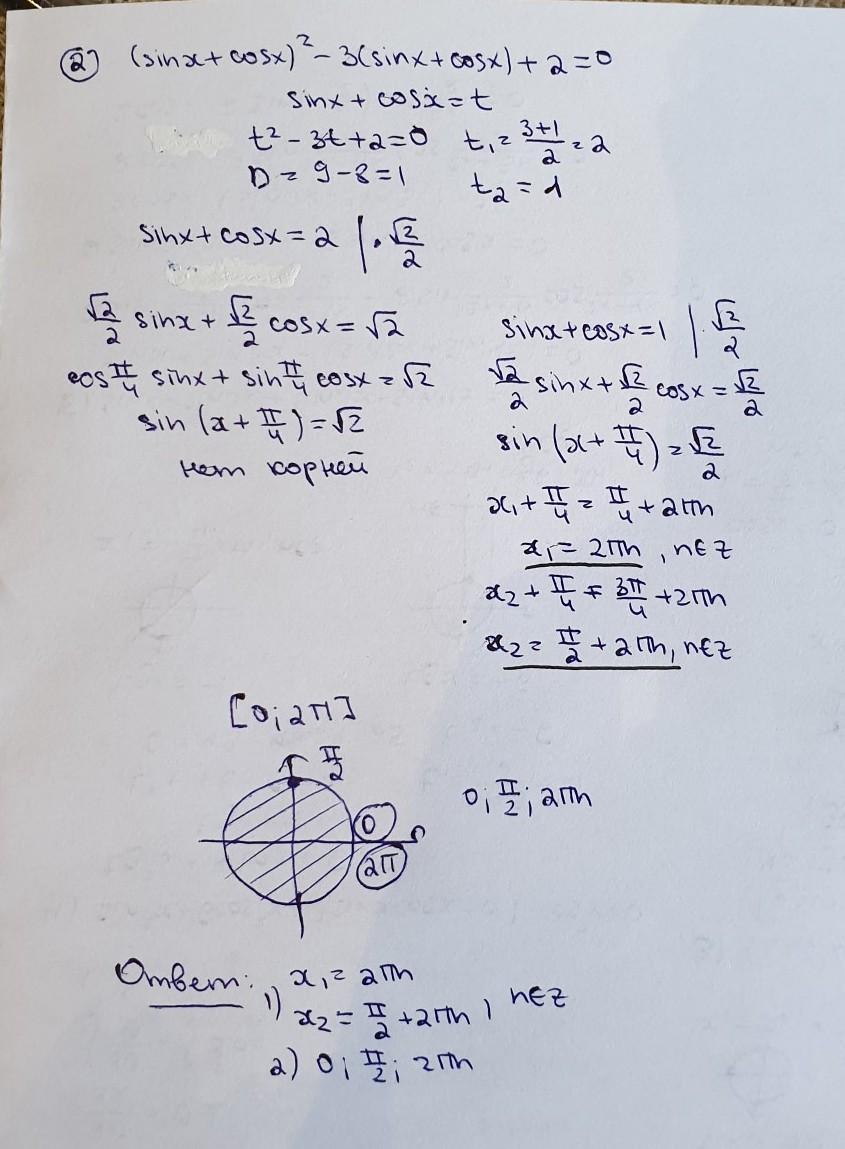 ② (sinx + cosx)² - 3(sinx + cosx) + 2 = 0
sinx + cosx = t
t² - 3t + 2 = 0
D = 9 - 8 = 1
t₁ = (3+1)/2 = 2
t₂ = 1
sinx + cosx = 2 | · √2/2
√2/2 sinx + √2/2 cosx = √2
cos π/4 sinx + sin π/4 cosx = √2
sin (x + π/4) = √2
нет корней
sinx + cosx = 1 | · √2/2
√2/2 sinx + √2/2 cosx = √2/2
sin (x + π/4) = √2/2
x₁ + π/4 = π/4 + 2πn
x₁ = 2πn, n∈z
x₂ + π/4 = 3π/4 + 2πn
x₂ = π/2 + 2πn, n∈z
[0; 2π]
π/2
0
2π
0; π/2; 2πn
Ответ:
1) x₁ = 2πn
x₂ = π/2 + 2πn, n∈z
2) 0; π/2; 2πn